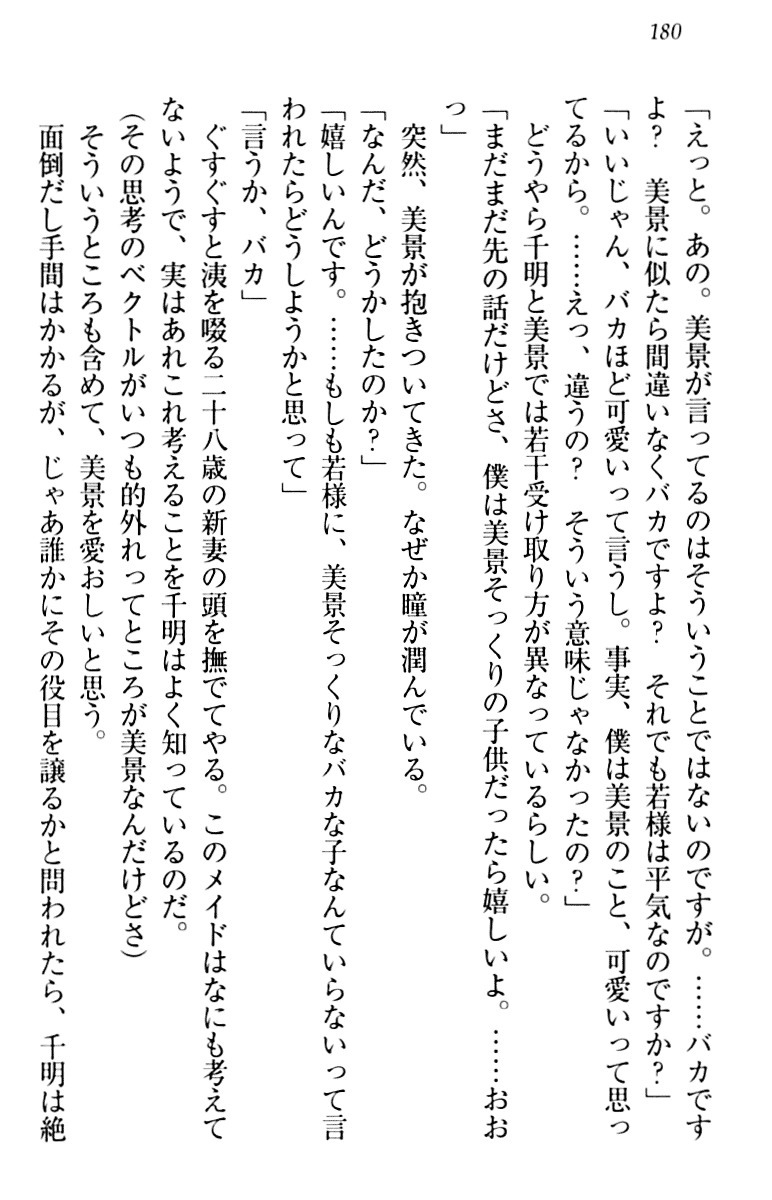 180
「えっと。あの。美景が言ってるのはそういうことではないのですが。……バカです
よ?　美景に似たら間違いなくバカですよ?　それでも若様は平気なのですか?」
「いいじゃん、バカほど可愛いって言うし。事実、僕は美景のこと、可愛いって思っ
てるから。……えっ、違うの?　そういう意味じゃなかったの?」
どうやら千明と美景では若干受け取り方が異なっているらしい。
「まだまだ先の話だけどさ、僕は美景そっくりの子供だったら嬉しいよ。……おお
っ」
突然、美景が抱きついてきた。なぜか瞳が潤んでいる。
「なんだ、どうかしたのか?」
「嬉しいんです。……もしも若様に、美景そっくりなバカな子なんていらないって言
われたらどうしようかと思って」
「言うか、バカ」
ぐすぐすと洟を啜る二十八歳の新妻の頭を撫でてやる。このメイドはなにも考えて
ないようで、実はあれこれ考えることを千明はよく知っているのだ。
(その思考のベクトルがいつも的外れってところが美景なんだけどさ)
そういうところも含めて、美景を愛おしいと思う。
面倒だし手間はかかるが、じゃあ誰かにその役目を譲るかと問われたら、千明は絶